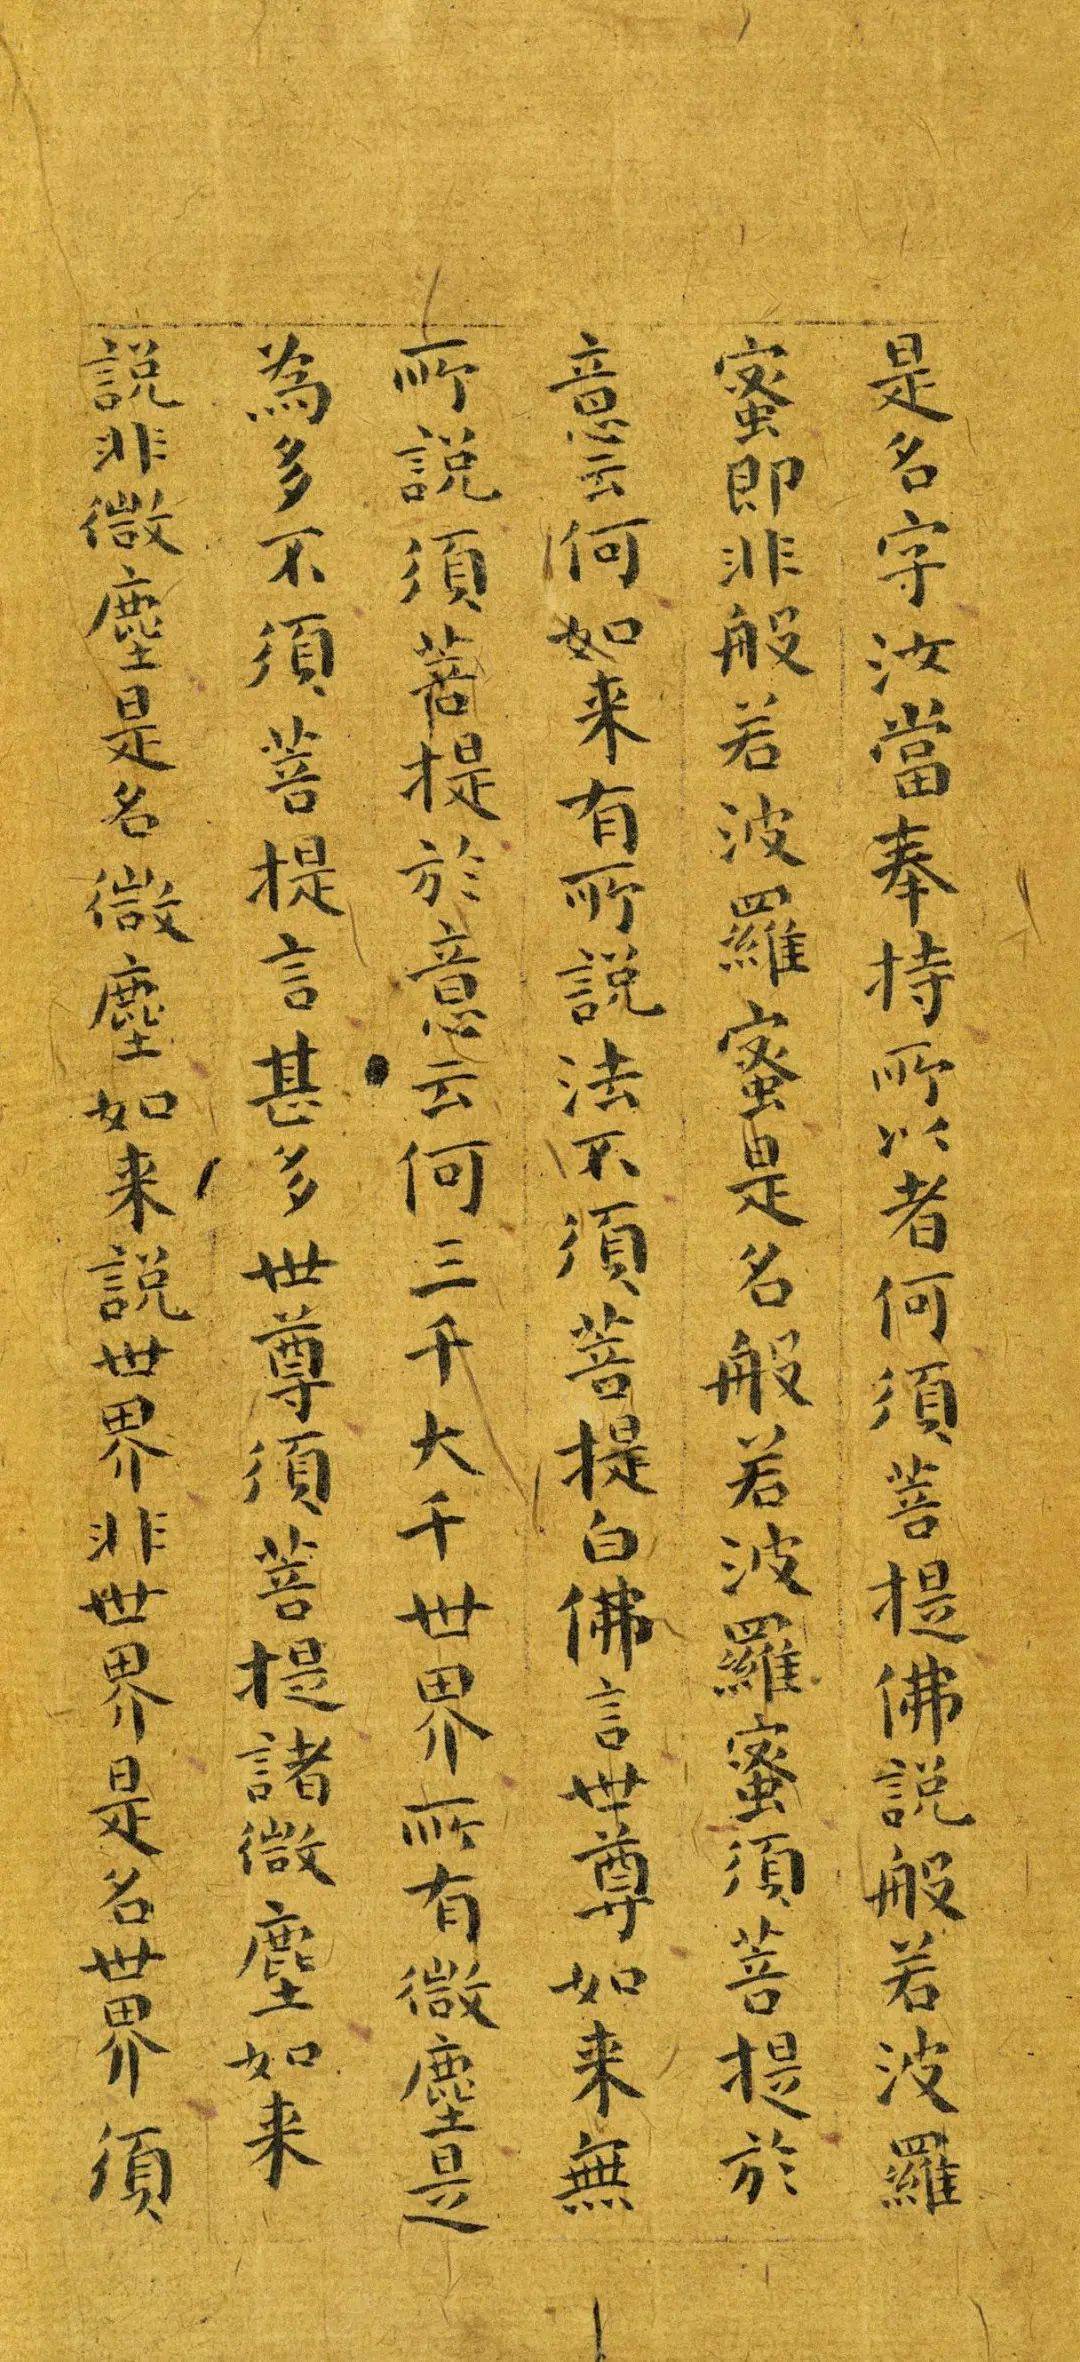 是名字汝當奉持所以者何須菩提佛說般若波羅
蜜即非般若波羅蜜是名般若波羅蜜須菩提於
意云何如来有所說法不須菩提白佛言世尊如来無
所說須菩提於意云何三千大千世界所有微塵是
為多不須菩提言甚多世尊須菩提諸微塵如来
說非微塵是名微塵如来說世界非世界是名世界須